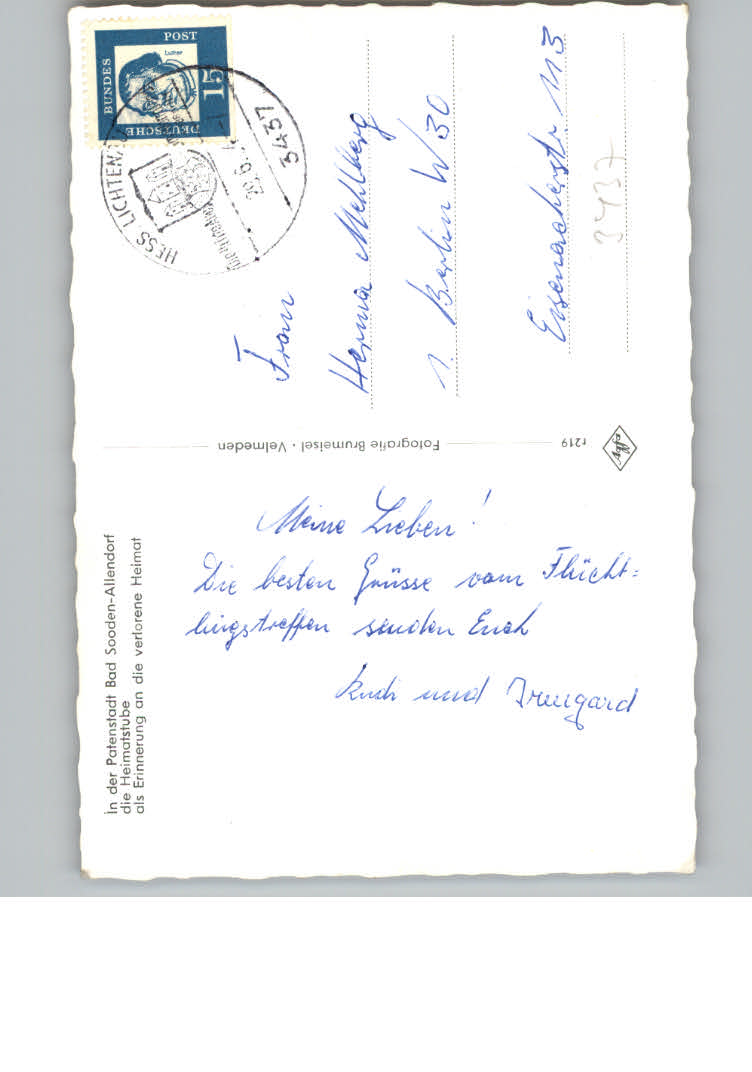 In der Patenstadt Bad Sooden-Allendorf
die Heimatstube
als Erinnerung an die verlorene Heimat
Meine Lieben!
Die besten Grüsse vom Flücht=
lingstreffen senden Euch
und Irmgard
Fotografie Brumeisel · Velmeden
r219
Agfa
DEUTSCHE
BUNDES
POST
Luther
15
HESS. LICHTENAU
3437
Frau
Herma Mehlberg
1. Berlin W 30
Eisenacherstr 113
3437